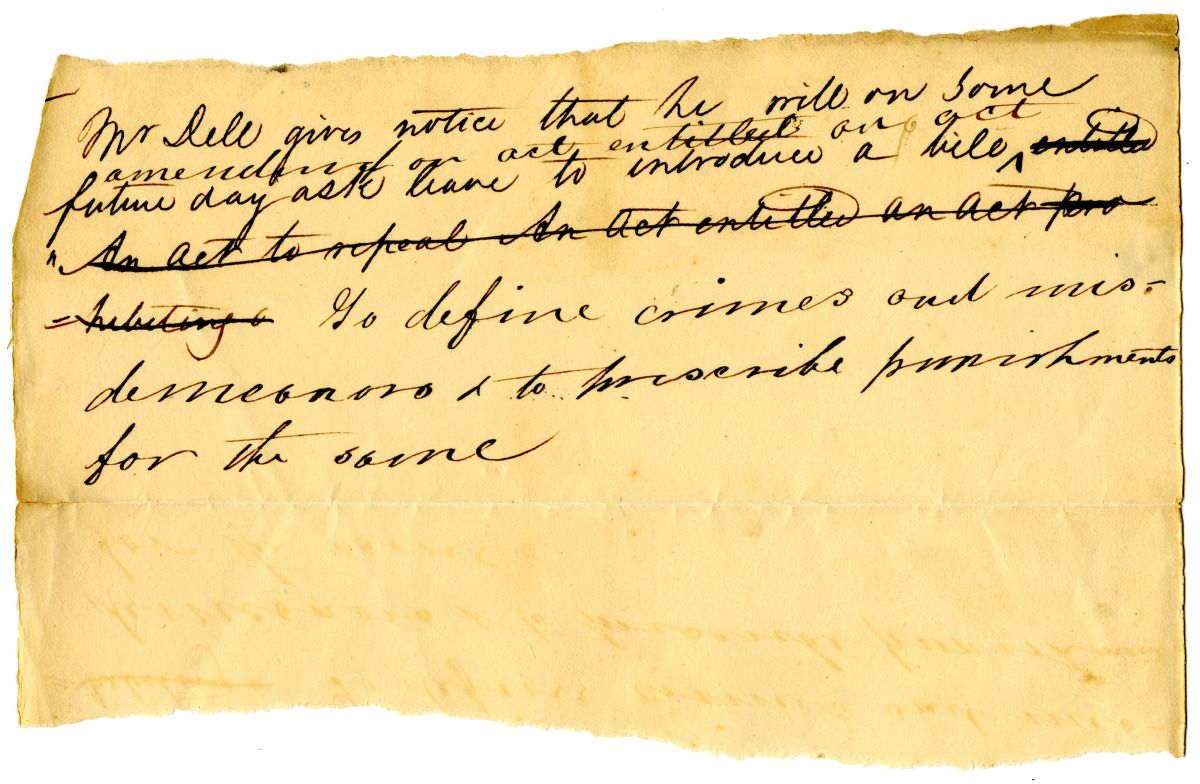 Mr Dell gives notice that he will on Some
amending an act entitled an act
future day ask leave to introduce a bill ^ entitled
"An Act to repeal An Act entitled an Act pro
=hibiting a To define crimes and mis-
demeanors & to prescribe punishments
for the same